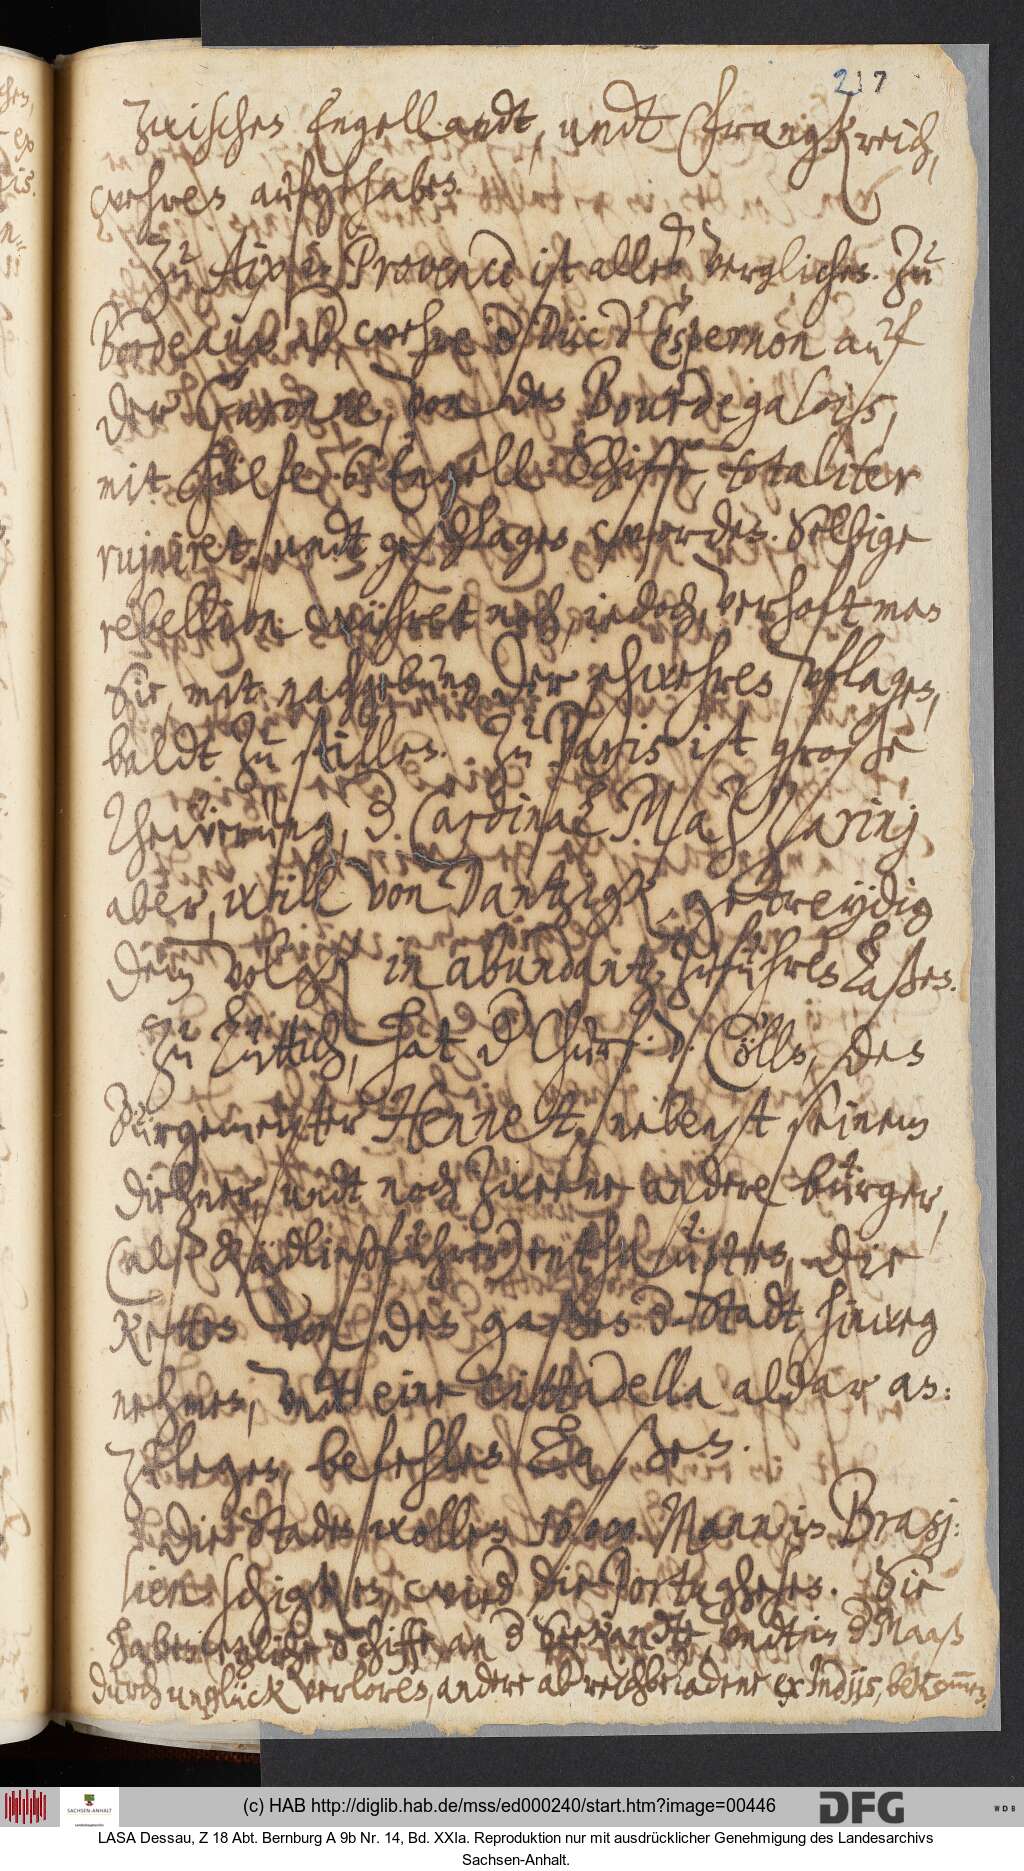 217
zwischen Engellandt, undt Franckreich,
wehren aufgehaben.
Zu Aix in Provence ist alles verglichen. Zu
Bordeaux ab, wehre d. Duc d'Espernon auf
der Garonne, von den Bourdegalois,
mit hülfe 6 Engell: Schiffe, totaliter
ruiniret undt geschlagen worden. Selbige
rebellion währet noch, iedoch verhoft man
Sie, mit nachgebung der schwehren aflagen,
baldt zu stillen. Zu Paris ist große
theüerung, d. Cardinal Mazzarinj
aber, will von Dantzigk getreydig
dem volgk in abundantz, zuführen laßen.
Zu Lüttich, hat d. Churf. v. Cölln, den
Bürgemeister Hennet nebenst seinem
diehner, undt noch zweene andere bürger,
(alß Rädlinßführer) enthaüpten, die
Ketten von den gaßen d. Stadt hinweg
nehmen, undt eine Cittadella aldar an:
zulegen, befehlen laßen.
Die Staden wollen 10000 Mann in Brasj:
lien schigken, wied. die Portughesen. Sie
haben etzliche schiffe an d. Seekandte undt in d. Maaß
durch unglück verloren, andere ab. reichbeladene ex Indijs, bekommen.
(c) HAB http://diglib.hab.de/mss/ed000240/start.htm?image=00446
SACHSEN-ANHALT
DFG
WDB
LASA Dessau, Z 18 Abt. Bernburg A 9b Nr. 14, Bd. XXIa. Reproduktion nur mit ausdrücklicher Genehmigung des Landesarchivs
Sachsen-Anhalt.